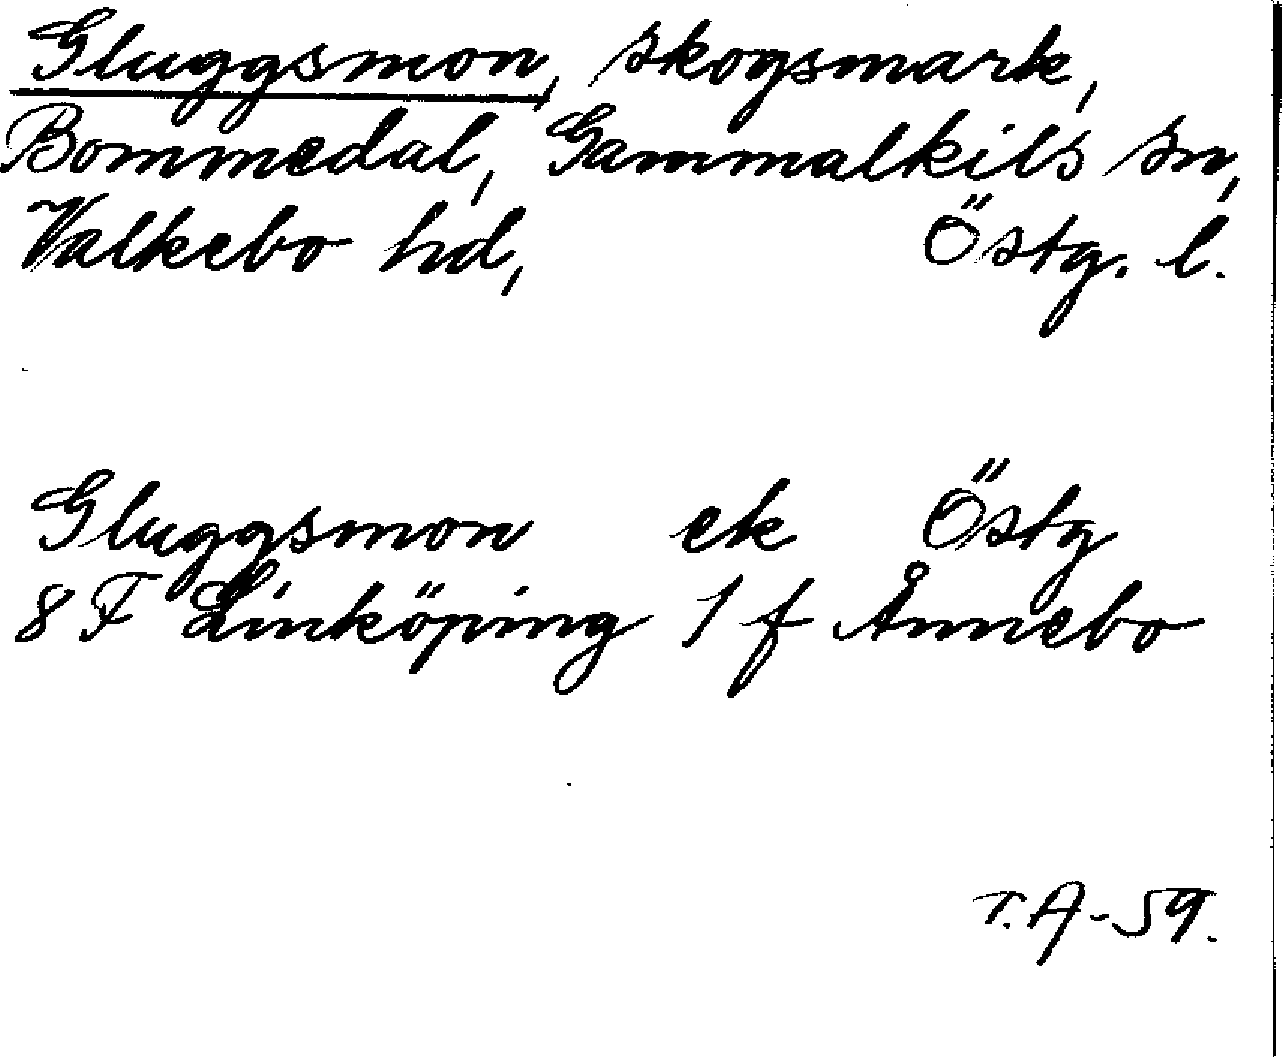 Gluggsmon, skogsmark,
Bommedal, Gammalkils sn,
Valkebo hd, Östg. l.
Gluggsmon ek Östg
8 F Linköping 1 f Ånnebo
T.A-59.